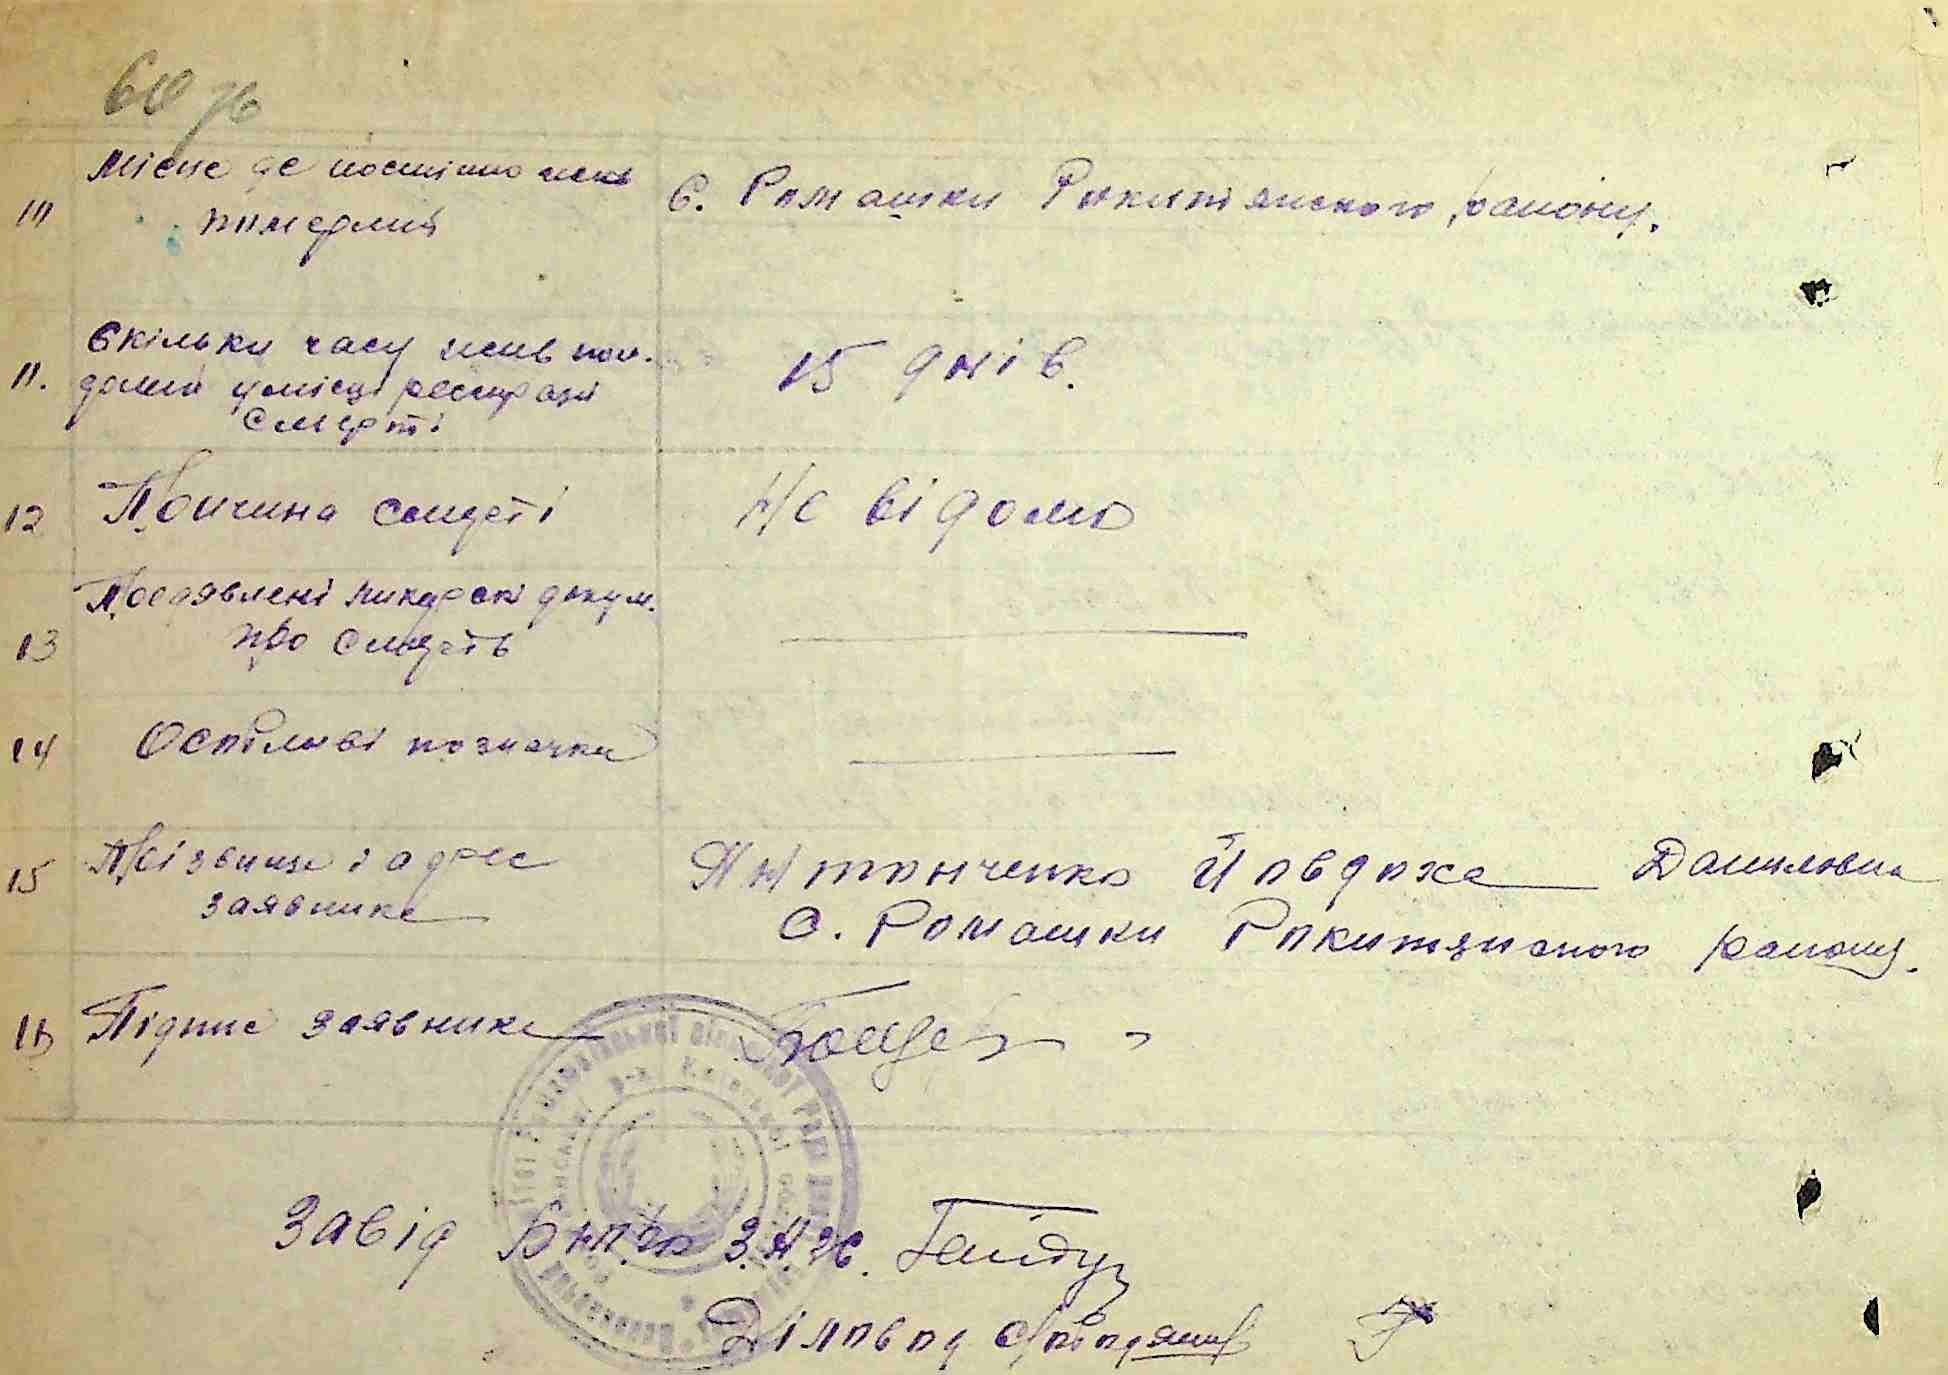 60 зв
10 Місце де постійно жив
померлий
С. Ромашки Рокитянского району.
11. Скільки часу жив пом.
у місці реєстрації
смерті
15 днів.
12 Причина смерті
Не відомо
13 Пред'явлені лікарскі докум.
про смерть
14 Особливі позначки
15 Прізвище і адрес
заявника
Антонченко Йовдоха Даниловна
С. Ромашки Рокитянсного району.
16 Підпис заявника
Завід Бюро З.А.Ж.
Діловод